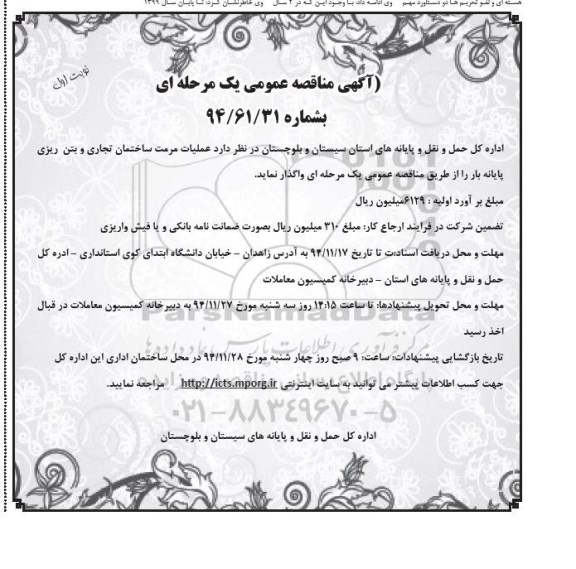 هسته ای و لغو تحریم ها دو دستاورد مهم وی ادامه داد: با وجود این که در ۲ سال وی خاطرنشان کرد: تا پایان سال ۱۳۹۹
نوبت اول
(آگهی مناقصه عمومی یک مرحله ای
بشماره ۹۴/۶۱/۳۱
اداره کل حمل و نقل و پایانه های استان سیستان و بلوچستان در نظر دارد عملیات مرمت ساختمان تجاری و بتن ریزی
پایانه بار را از طریق مناقصه عمومی یک مرحله ای واگذار نماید.
مبلغ بر آورد اولیه : ۶۱۲۹میلیون ریال
تضمین شرکت در فرآیند ارجاع کار: مبلغ ۳۱۰ میلیون ریال بصورت ضمانت نامه بانکی و یا فیش واریزی
مهلت و محل دریافت اسناد:ت تا تاریخ ۹۴/۱۱/۱۷ به آدرس زاهدان – خیابان دانشگاه ابتدای کوی استانداری – ادره کل
حمل و نقل و پایانه های استان – دبیرخانه کمیسیون معاملات
مهلت و محل تحویل پیشنهادها: تا ساعت ۱۴:۱۵ روز سه شنبه مورخ ۹۴/۱۱/۲۷ به دبیرخانه کمیسیون معاملات در قبال
اخذ رسید
ParsNamadData
مرکز فرآوری اطلاعات پارس نماد داده ها
تاریخ بازگشایی پیشنهادات: ساعت: ۹ صبح روز چهار شنبه مورخ ۹۴/۱۱/۲۸ در محل ساختمان اداری این اداره کل
جهت کسب اطلاعات پیشتر می توانید به سایت اینترنتی http://icts.mporg.ir مراجعه نمایید.
۰۲۱-۸۸۳۴۹۶۷۰-۵
اداره کل حمل و نقل و پایانه های سیستان و بلوچستان